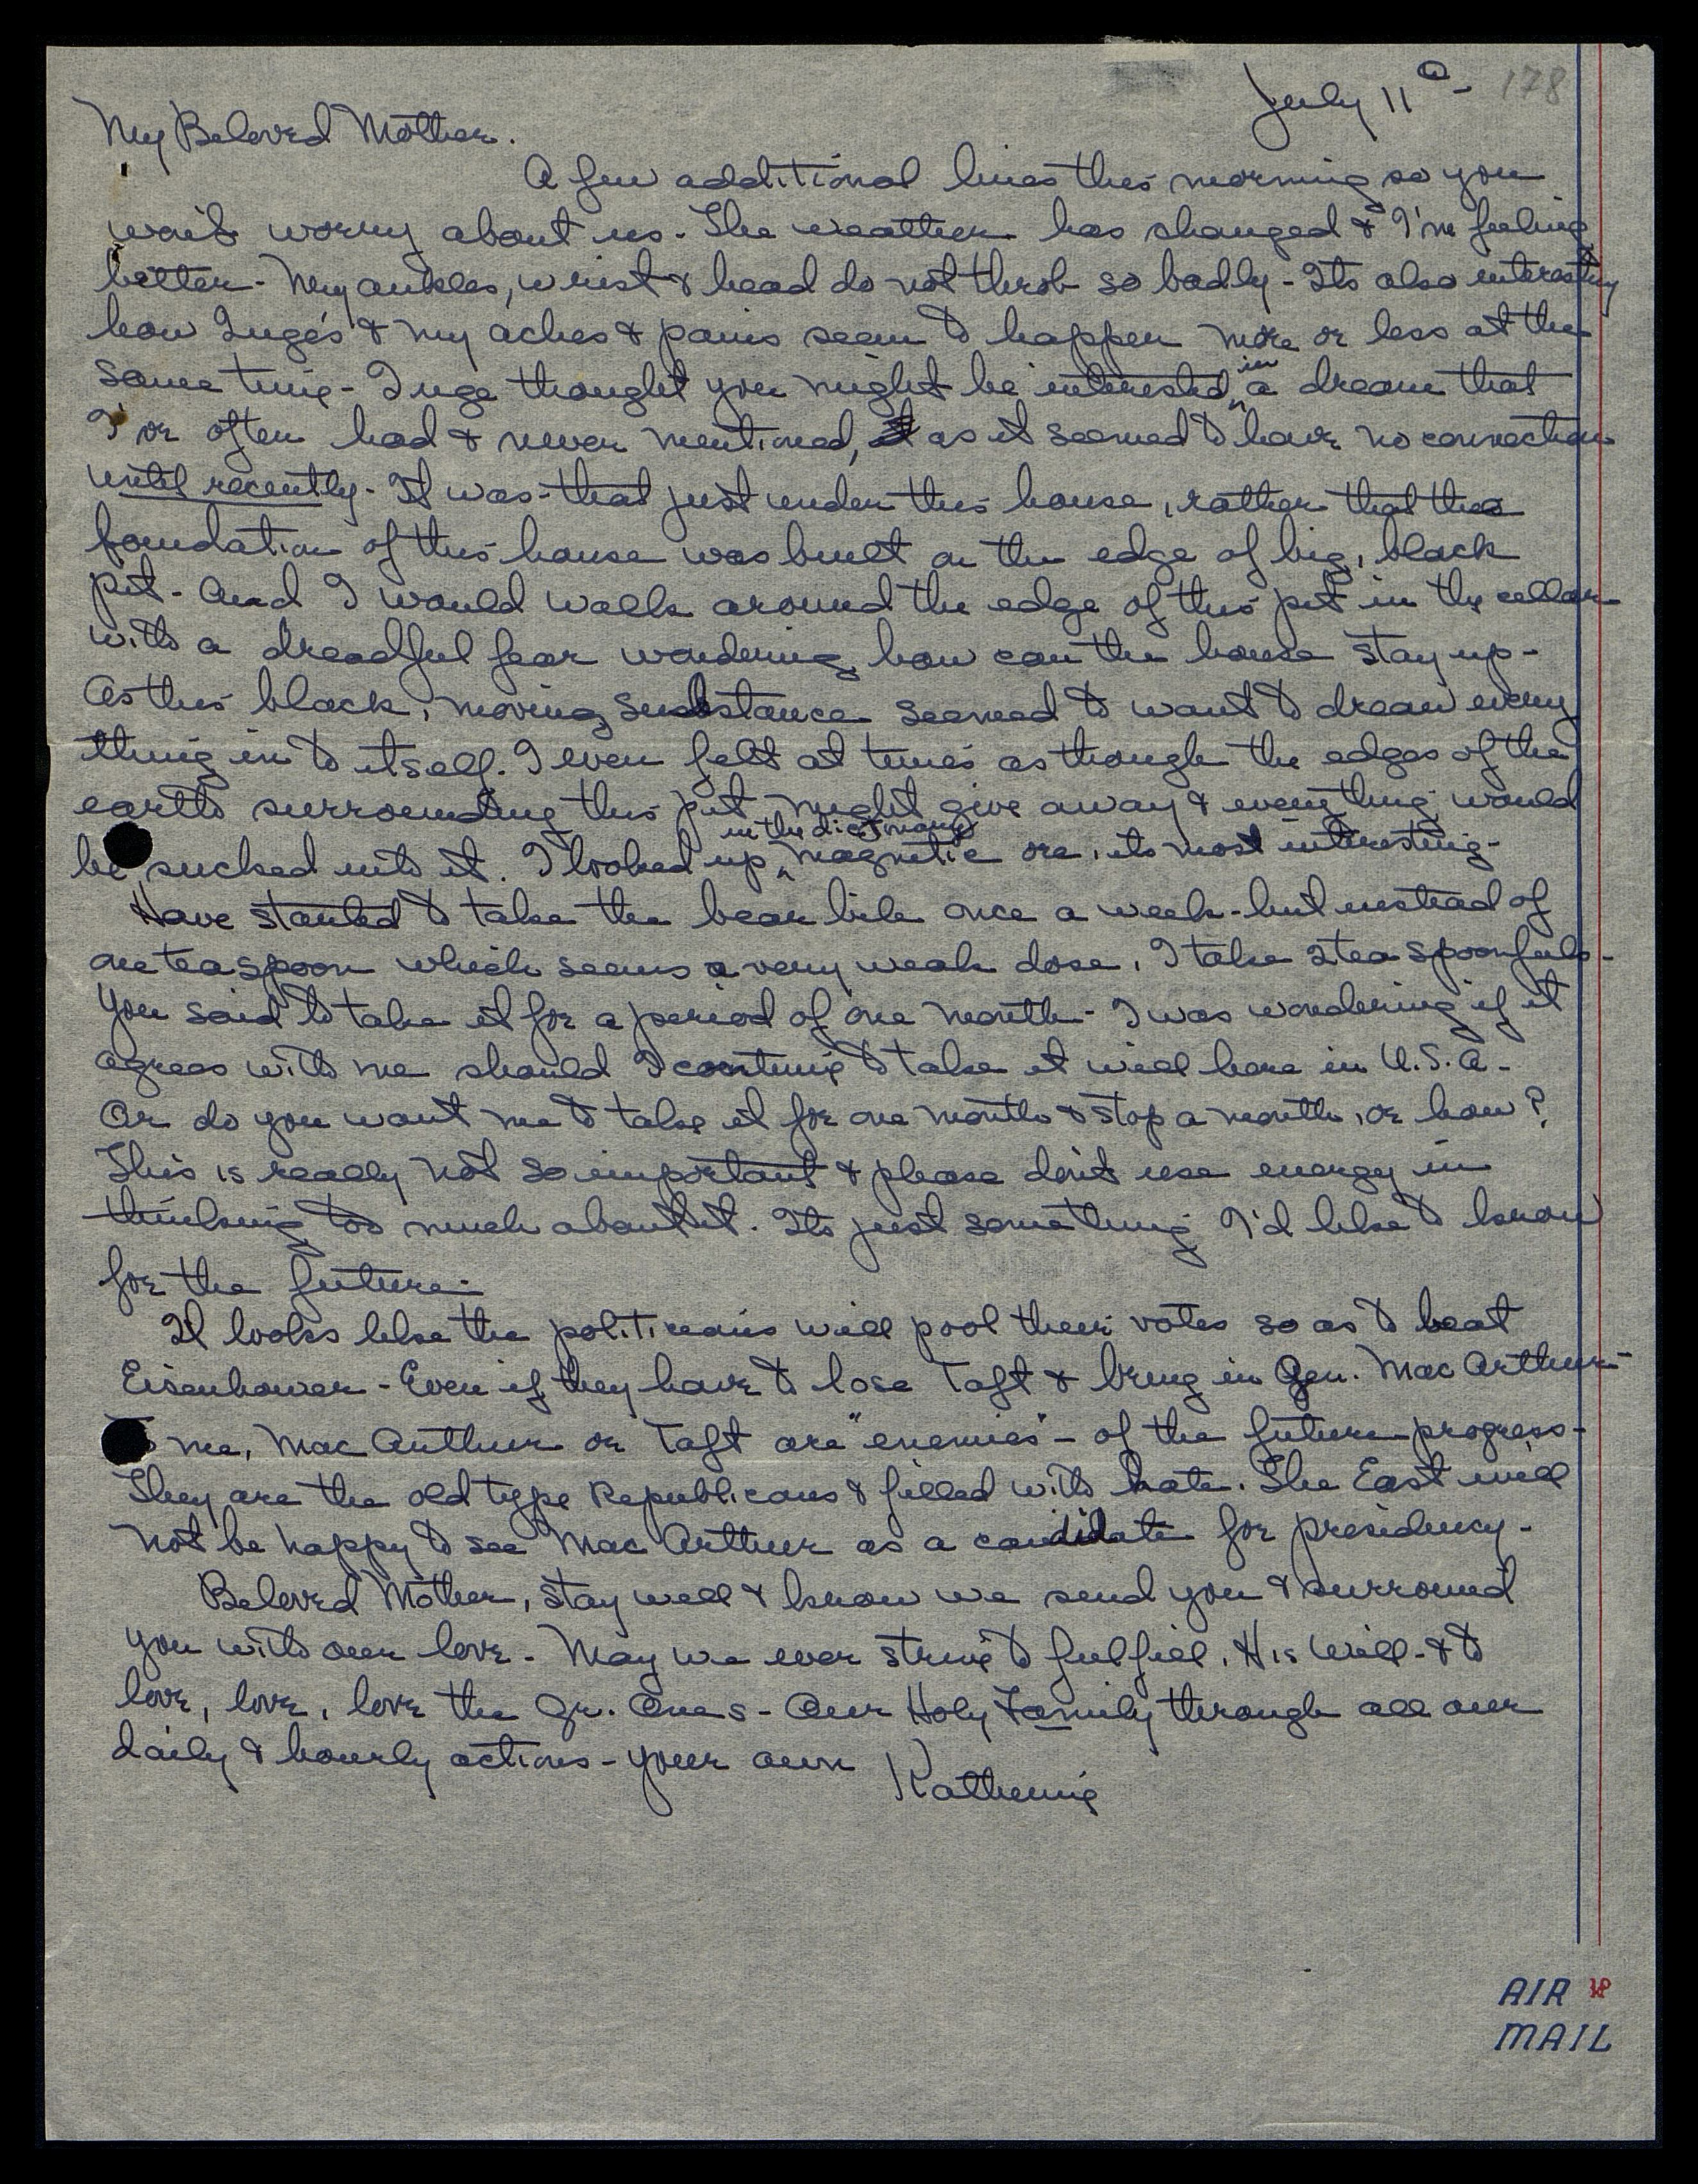 July 11ᵃ - 178
My Beloved Mother.
A few additional lines this morning so you
won't worry about us. The weather has changed & I'm feeling
better - My ankles, wrist & head do not throb so badly - Its also interesting
how Inge's & my aches & pains seem to happen more or less at the
same time - Inge thought you might be interested in a dream that
I've often had & never mentioned, as it seemed to have no connection
until recently - It was that just under this house, rather that the
foundation of this house was built on the edge of big, black
pit - And I would walk around the edge of this pit in the cellar
with a dreadful fear wondering, how can the house stay up -
As this black, moving substance seemed to want to draw every
thing in to itself. I even felt at times as though the edges of the
earth surrounding this pit might give away & everything would
be sucked into it. I looked up in the dictionary magnetic ore, its most interesting -
Have started to take the bear bile once a week - but instead of
one teaspoon which seems a very weak dose, I take 2 teaspoonfuls -
You said to take it for a period of one month - I was wondering if it
agrees with me should I continue to take it will here in U.S.A. -
Or do you want me to take it for one month & stop a month, or how?
This is really not so important & please don't use energy in
thinking too much about it. Its just something I'd like to know
for the future -
It looks like the politicians will pool their votes so as to beat
Eisenhower - Even if they have to lose Taft & bring in Gen. Mac Arthur -
To me, Mac Arthur or Taft are "enemies" - of the future progress -
They are the old type Republicans & filled with hate. The East will
not be happy to see Mac Arthur as a candidate for presidency -
Beloved Mother, stay well & know we send you & surround
you with our love - May we ever strive to fulfill, His Will - & to
love, love, love the Gr. Ones - Our Holy Family through all our
daily & hourly actions - your own Katherine
AIR
MAIL